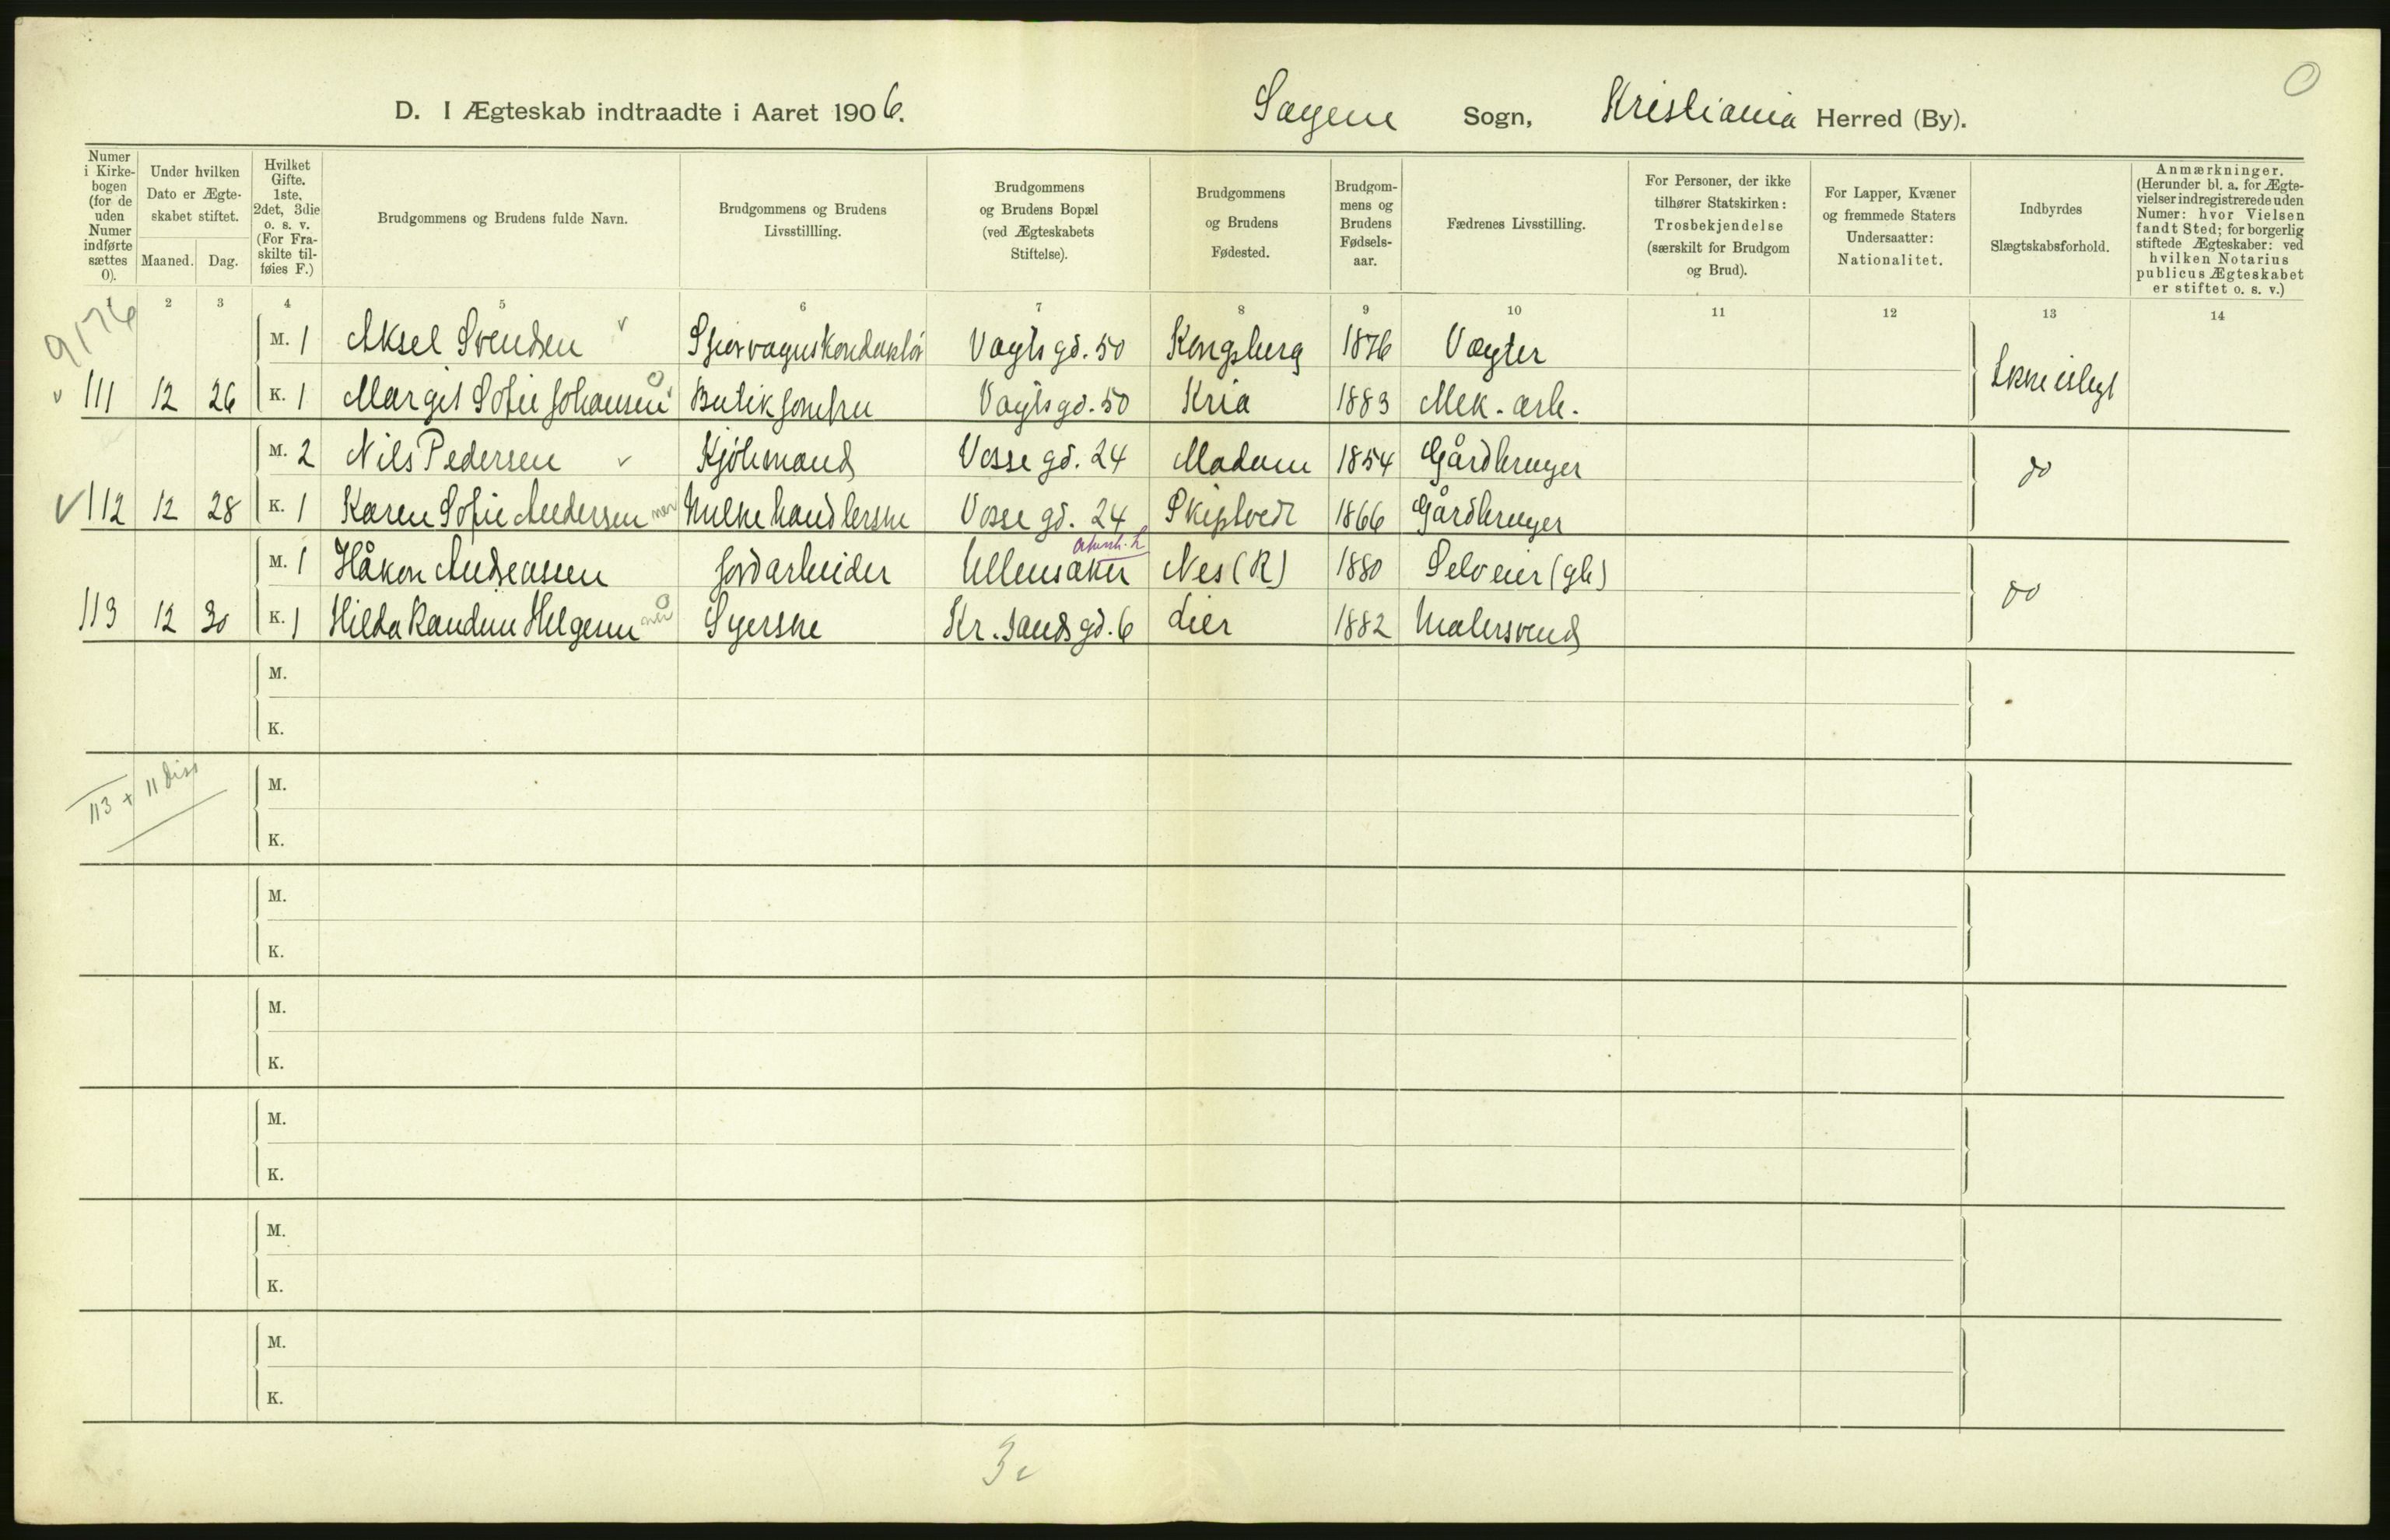 D. I Ægteskab indtraadte i Aaret 1906. Sagene Sogn, Kristiania Herred (By).
Numer i Kirkebogen (for de uden Numer indførte sættes 0).
Under hvilken Dato er Ægteskabet stiftet.
Maaned. Dag.
Hvilket Gifte. 1ste, 2det, 3die o. s. v. (For Fraskilte tilføies F.)
Brudgommens og Brudens fulde Navn.
Brudgommens og Brudens Livsstillling.
Brudgommens og Brudens Bopæl (ved Ægteskabets Stiftelse).
Brudgommens og Brudens Fødested.
Brudgommens og Brudens Fødselsaar.
Fædrenes Livsstilling.
For Personer, der ikke tilhører Statskirken: Trosbekjendelse (særskilt for Brudgom og Brud).
For Lapper, Kvæner og fremmede Staters Undersaatter: Nationalitet.
Indbyrdes Slægtskabsforhold.
Anmærkninger. (Herunder bl. a. for Ægtevielser indregistrerede uden Numer: hvor Vielsen fandt Sted; for borgerlig stiftede Ægteskaber: ved hvilken Notarius publicus Ægteskabet er stiftet o. s. v.)
1 2 3 4 5 6 7 8 9 10 11 12 13 14
9176
M. 1 Aksel Svendsen Sporvognskonduktør Vogts gd. 50 Kongsberg 1876 Vægter
111 12 26 K. 1 Margit Sofie Johansen Butikjomfru Vogts gd. 50 Kria 1883 Mek. arb. Ikke islegt
M. 2 Nils Pedersen Kjøbmand Vosse gd. 24 Modum 1854 Gårdbruger
112 12 28 K. 1 Karen Sofie Andersen Melkehandlerske Vosse gd. 24 Skiptvedt 1866 Gårdbruger do
M. 1 Håkon Andreassen Jordarbeider Ullensaker Akersh. Nes (R) 1880 Selveier (gb)
113 12 30 K. 1 Hilda Randine Helgesen Syerske Kr. sands gd. 6 Lier 1882 Malersvend do
M.
K.
113 + 11 diss
M.
K.
M.
K.
M.
K.
M.
K.
M.
K.
M.
K.